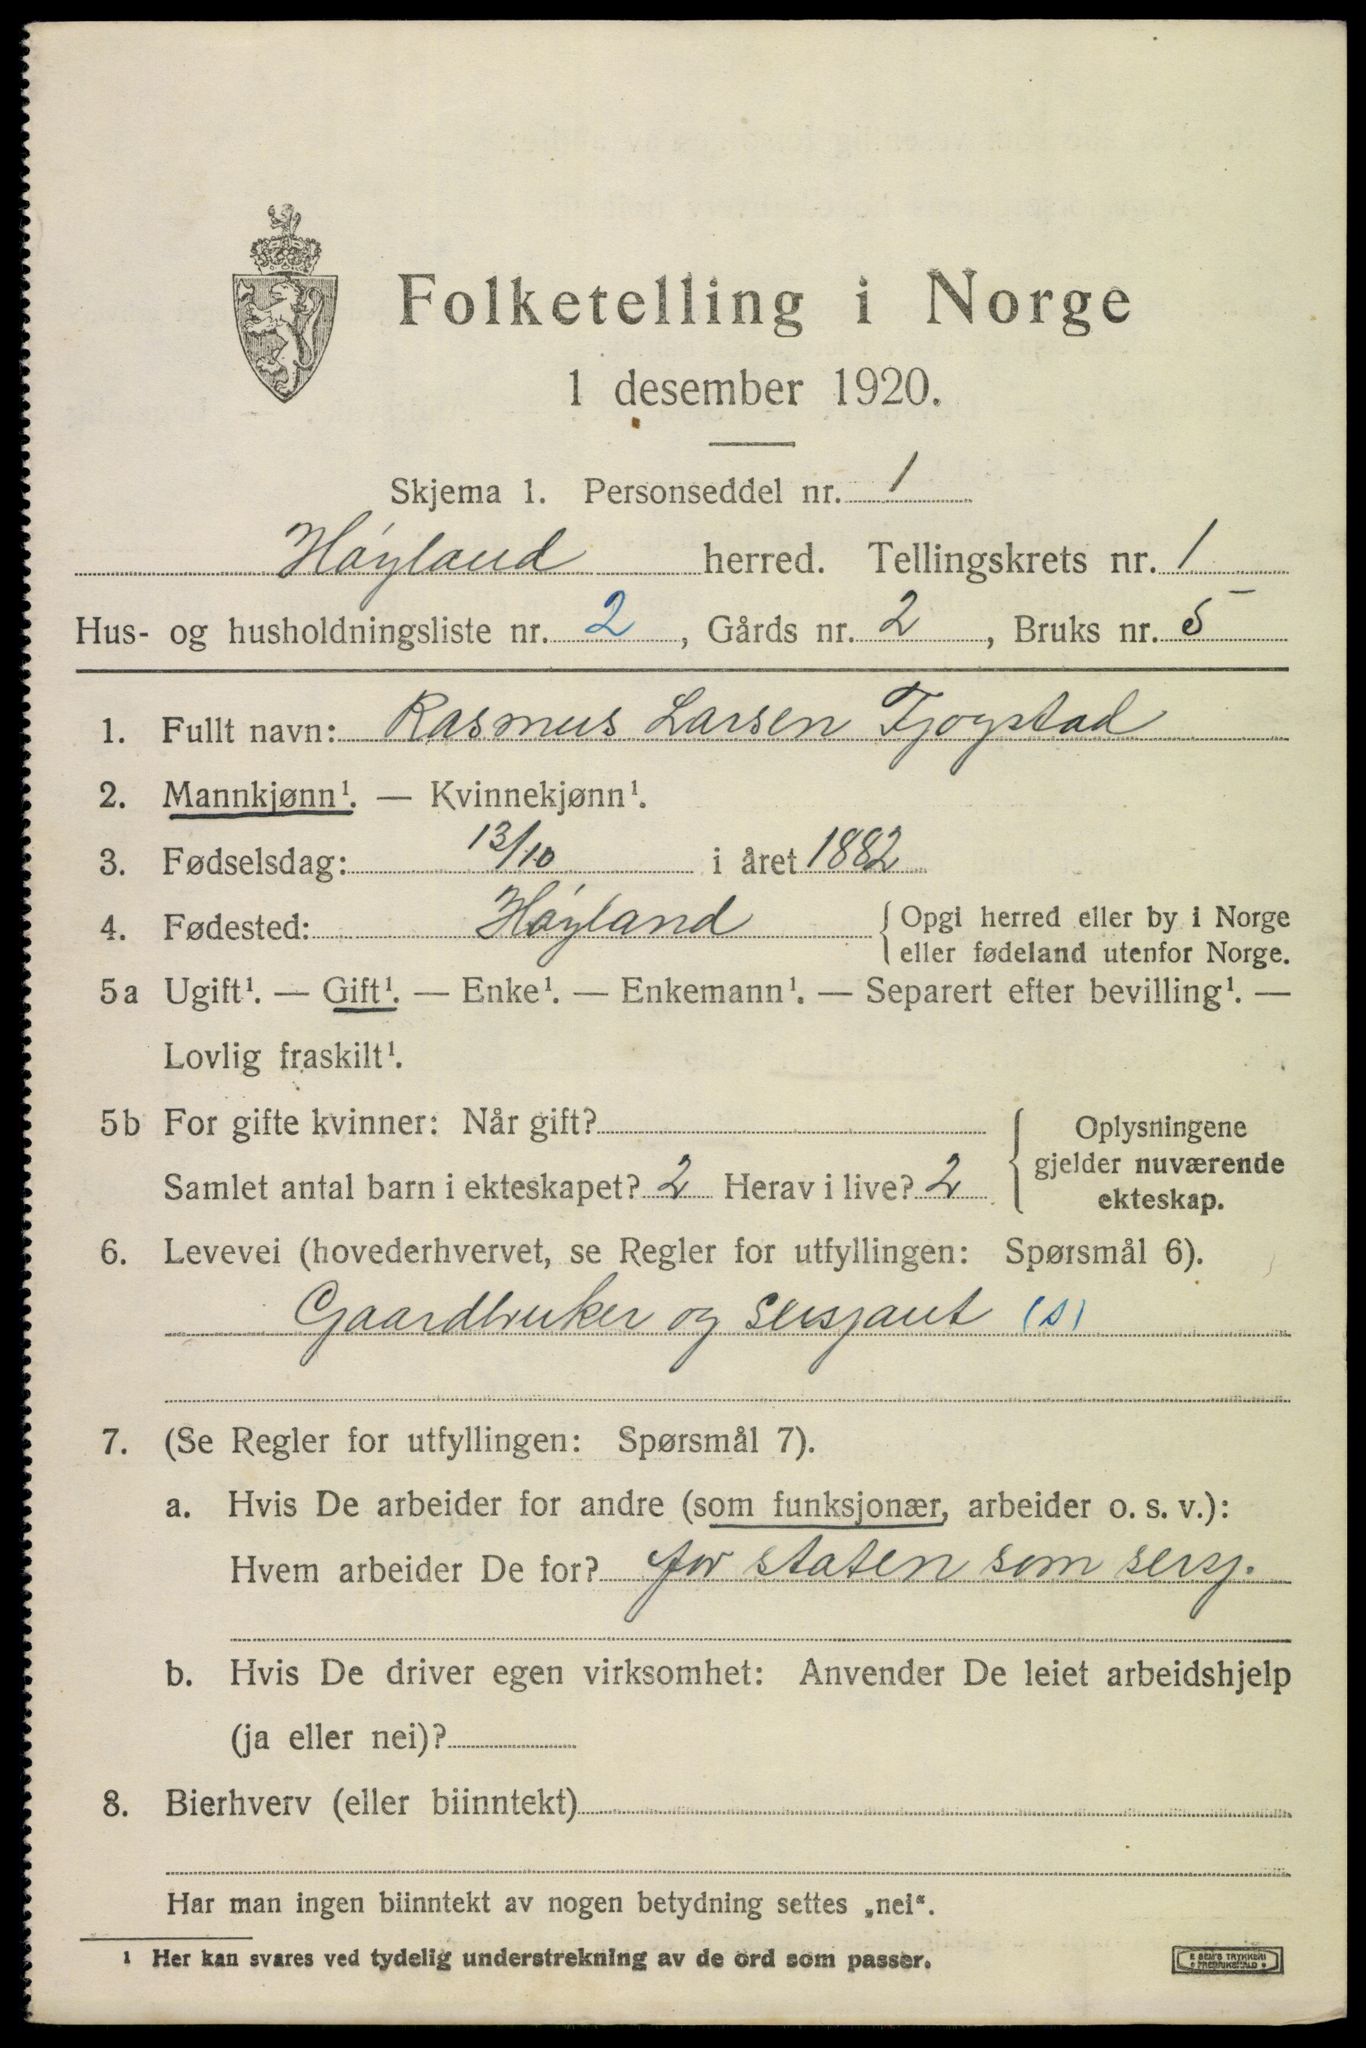 Folketelling i Norge
1 desember 1920.
Skjema 1. Personseddel nr. 1
Høyland herred. Tellingskrets nr. 1
Hus- og husholdningsliste nr. 2, Gårds nr. 2, Bruks nr. 5
1. Fullt navn: Rasmus Larsen Tjogstad
2. Mannkjønn¹. — Kvinnekjønn¹.
3. Fødselsdag: 13/10 i året 1882
4. Fødested: Høyland { Opgi herred eller by i Norge
eller fødeland utenfor Norge.
5a Ugift¹. — Gift¹. — Enke¹. — Enkemann¹. — Separert efter bevilling¹. —
Lovlig fraskilt¹.
5b For gifte kvinner: Når gift?
Samlet antal barn i ekteskapet? 2 Herav i live? 2
Oplysningene
gjelder nuværende
ekteskap.
6. Levevei (hovederhvervet, se Regler for utfyllingen: Spørsmål 6).
Gaardbruker og sersjant (s)
7. (Se Regler for utfyllingen: Spørsmål 7).
a. Hvis De arbeider for andre (som funksjonær, arbeider o. s. v.):
Hvem arbeider De for? for staten som sersj.
b. Hvis De driver egen virksomhet: Anvender De leiet arbeidshjelp
(ja eller nei)?
8. Bierhverv (eller biinntekt)
Har man ingen biinntekt av nogen betydning settes „nei“.
¹ Her kan svares ved tydelig understrekning av de ord som passer.
E SEM'S TRYKKERI
FREDRIKSHALD